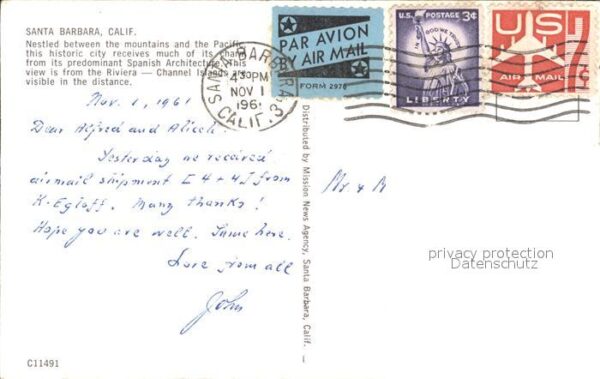 SANTA BARBARA, CALIF.
Nestled between the mountains and the Pacific,
this historic city receives much of its charm
from its predominant Spanish Architecture. This
view is from the Riviera — Channel Islands are
visible in the distance.
PAR AVION
BY AIR MAIL
FORM 2978
U.S. POSTAGE 3¢
IN GOD WE TRUST
LIBERTY
US
7¢
AIR MAIL
SANTA BARBARA
430PM
NOV 1
1961
CALIF. 3
Nov. 1, 1961
Dear Alfred and
Yesterday we received
airmail shipment I 4 + 4J from
K-Egloff. Many thanks!
Hope you are well. Same here.
Love from all
John
Mr &
Distributed by Mission News Agency, Santa Barbara, Calif.
privacy protection
Datenschutz
C11491